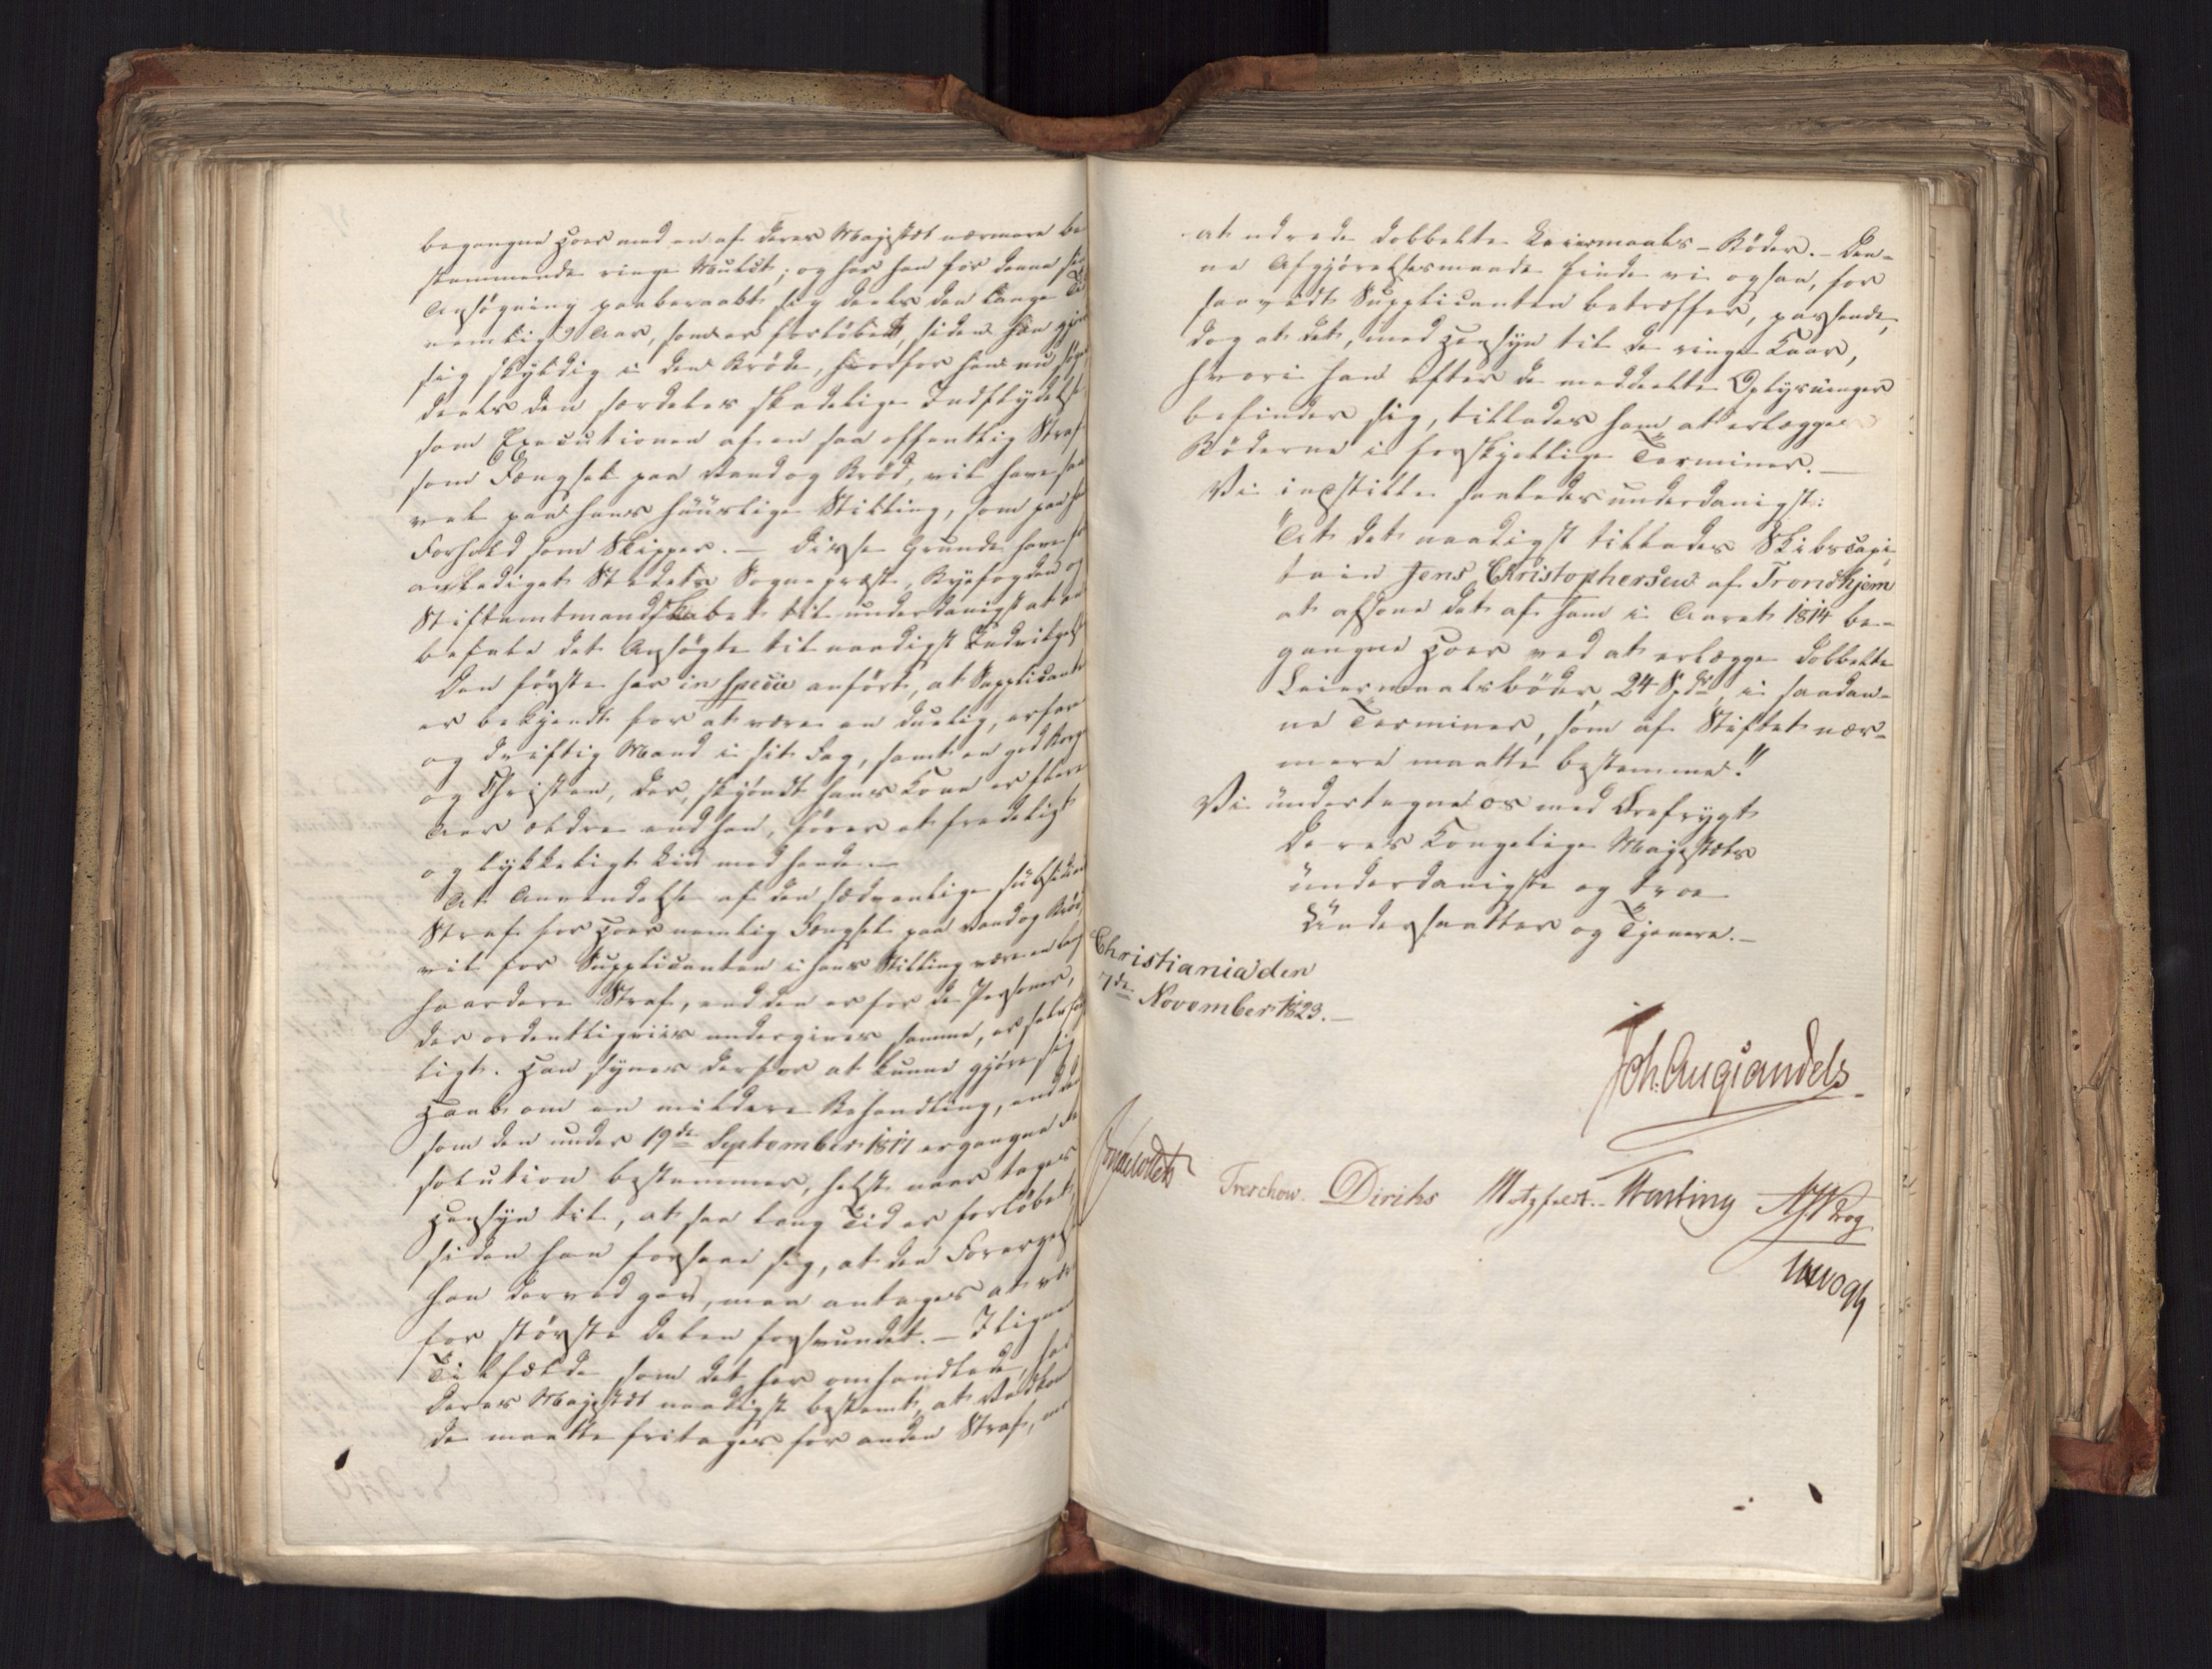 begangne Hoer med en af Deres Majestæt nærmere be
stemmende ringe Mulct; og har han for denne sin
Ansøgning paaberaabt sig deels den lange Tid
nemlig 9 Aar, som er forløbet, siden han gjorde
sig skyldig i den Brøde, hvorfor han nu søger
deels den særdeles skadelige Indflydelse
som Executionen af en saa offentlig Straf
som Fængsel paa Vand og Brød, vil have saa
vel paa hans huuslige Stilling, som paa hans
Forhold som Skipper. — Disse Grunde have
anlediget Stedets Sognepræst, Byefogden og
Stiftamtmandskabet til underdanigst at an
befale det Ansøgte til naadigst Indvilgelse
Den første har in specie anført, at Supplicanten
er bekjendt for at være en duelig, erfaren
og driftig Mand i sit Fag, samt en god Borger
og Christen, der, skjøndt hans Kone er flere
Aar ældre end han, fører et fredeligt
og lykkeligt Liv med hende. —
At Anvendelse af den sædvanlige subsidiaire
Straf for Hoer nemlig Fængsel paa Vand og Brød,
vil for Supplicanten i hans Stilling være en langt
haardere Straf, end den er for de Personer,
der ordentligviis undergives samme, er selvføl
ligt. Han synes derfor at kunne gjøre sig
Haab om en mildere Behandling, end den
som den under 19de September 1811 ergangne Re
solution bestemmer, helst naar tages
Hensyn til, at saa lang Tid er forløbet,
siden han forsaae sig, at den Forargelse
han derved gav, maa antages at være
for største Delen forsvundet. — I lignende
Tilfælde som det her omhandlede, har
Deres Majestæt naadigst bestemt, at Vedkommen
de maatte fritages for anden Straf, mod
at udrede dobbelte Leiermaals-Bøder. — Den-
ne Afgjørelsesmaade finde vi ogsaa, for
saavidt Supplicanten betræffer, passende,
dog at det, med Hensyn til de ringe Kaar,
hvori han efter de meddeelte Oplysninger
befinder sig, tillades ham at erlægge
Bøderne i forskjellige Terminer. —
Vi indstille saaledes underdanigst:
"At det naadigst tillades Skibscapi
tain Jens Christophersen af Trondhjem
at afsone det af ham i Aaret 1814 be-
gangne Hoer ved at erlægge dobbelte
Leiermaalsbøder, 24 Spdr, i saadan-
ne Terminer, som af Stiftet nær-
mere maatte bestemmes."
Vi undertegne os med Ærefrygt
Deres Kongelige Majestæts
underdanigste og troe
Undersaatter og Tjenere. —
Christiania den
7de November 1823. —
Joh. Aug Sandels
Jonas Collett Treschow. Diriks Motzfeldt. Fasting A. Krog